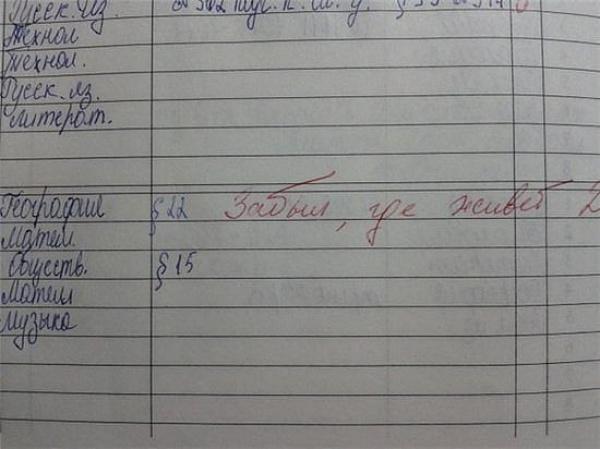 Русск. яз. №512 §
Технол
Технол.
Русск. яз.
Литерат.
География §22 Забыл, где живёт 2
Матем.
Обществ. §15
Матем
Музыка